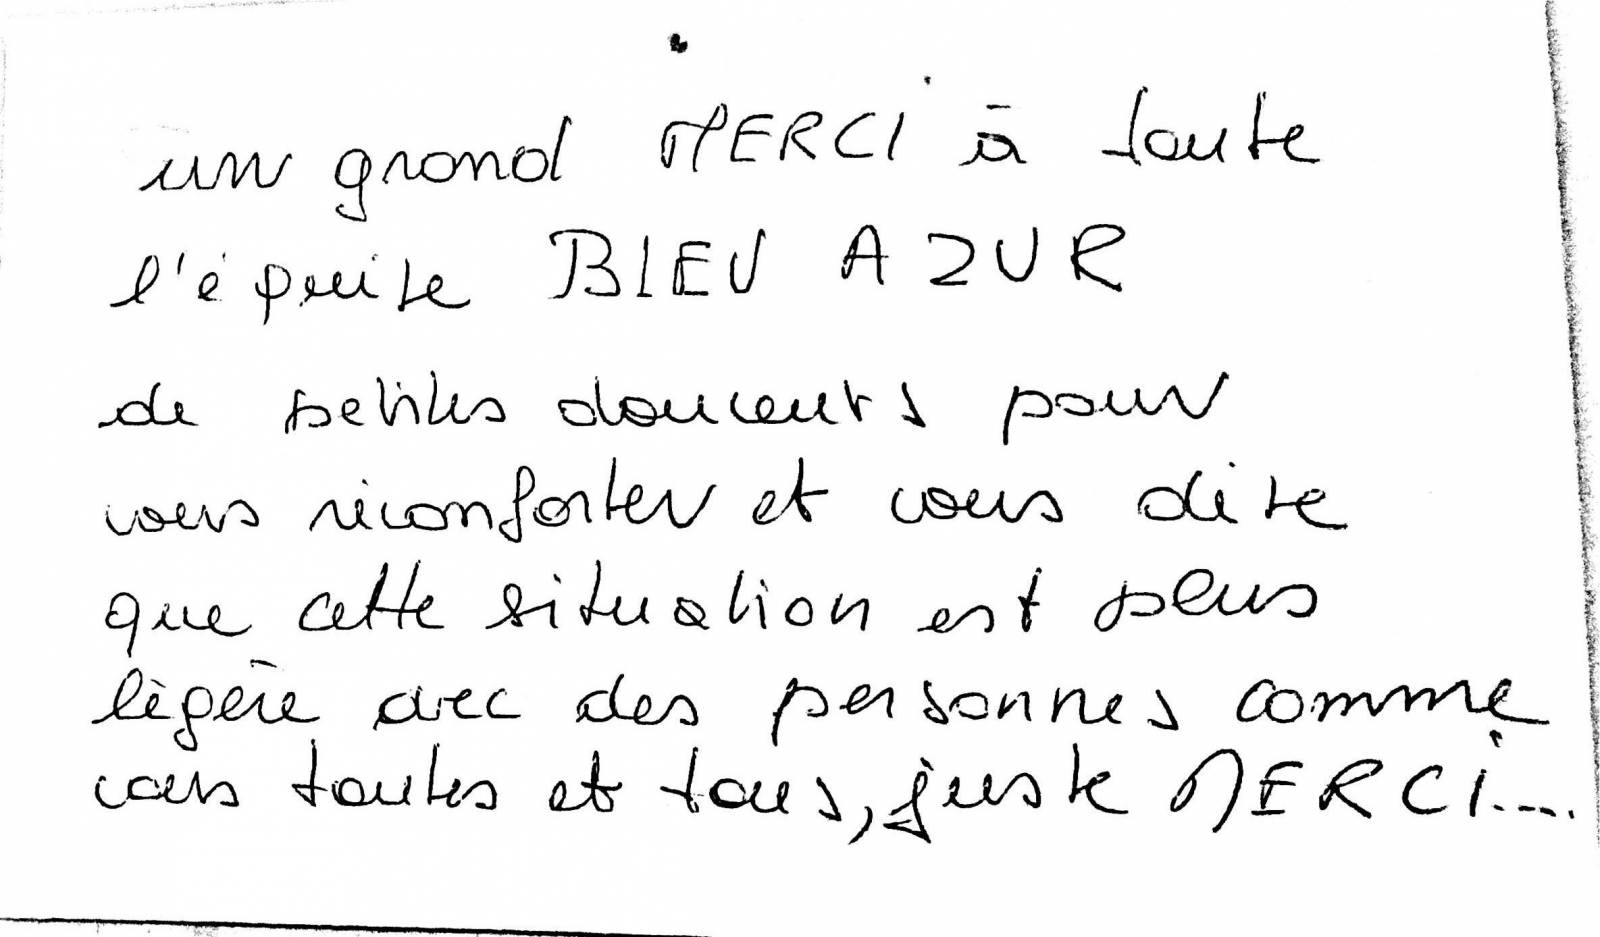 un grand MERCI à toute
l'équite BLEU AZUR
de petites douceurs pour
vous réconforter et vous dire
que cette situation est plus
légère avec des personnes comme
vous toutes et tous, juste MERCI....